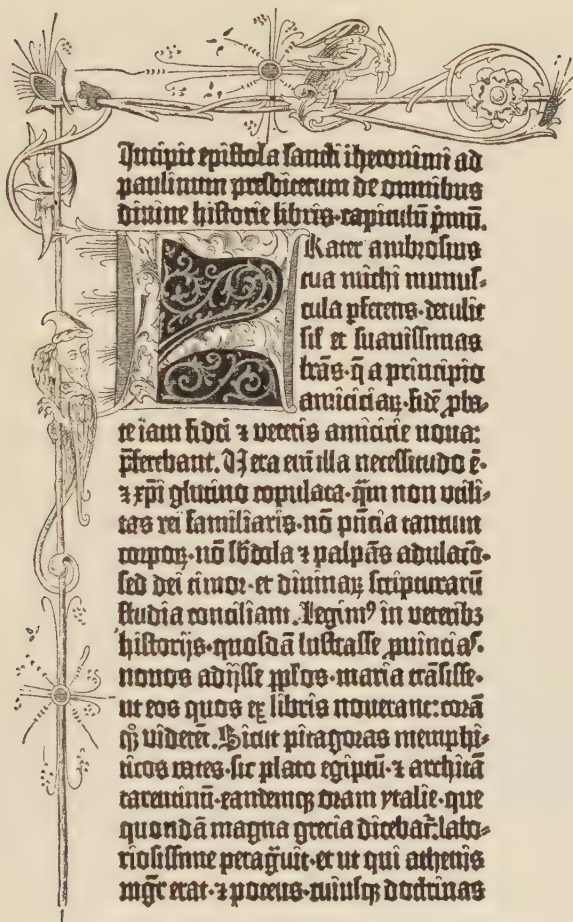 Incipit epistola sancti iheronimi ad
paulinum presbiterum de omnibus
divine historie libris·capitulū p̄mū.
Frater ambrosius
tua michi munus-
cula pferens·detulit
sil̄ et suavissimas
lr̄as·q̄ a principio
amiciciaꝝ·fidē ꝓba-
te iam fidei ⁊ veteris amicicie nova:
p̄ferebant. Uera em̄ illa necessitudo ē·
⁊ xp̄i glutino copulata·qm̄ non utili-
tas rei familiaris·nō p̄ncia tantum
corpoꝝ·nō sb̄dola ⁊ palpās adulacō·
sed dei timor·et divinaꝝ scripturarū
studia conciliant. Legimꝰ in veteribꝫ
historijs·quosdā lustrasse ꝓvincias·
novos adijsse ppl̄os·maria trāsisse·
ut eos quos ex libris noverant: corā
qꝫ viderēt. Sicut pitagoras memphi-
ticos vates·sic plato egiptū·⁊ architā
tarentinū·eandemqꝫ oram ytalie·que
quondā magna grecia dicebat̄: labo-
riosissime peragͥvit·et ut qui athenis
mgr̄ erat·⁊ potens·cuiusqꝫ doctrinas